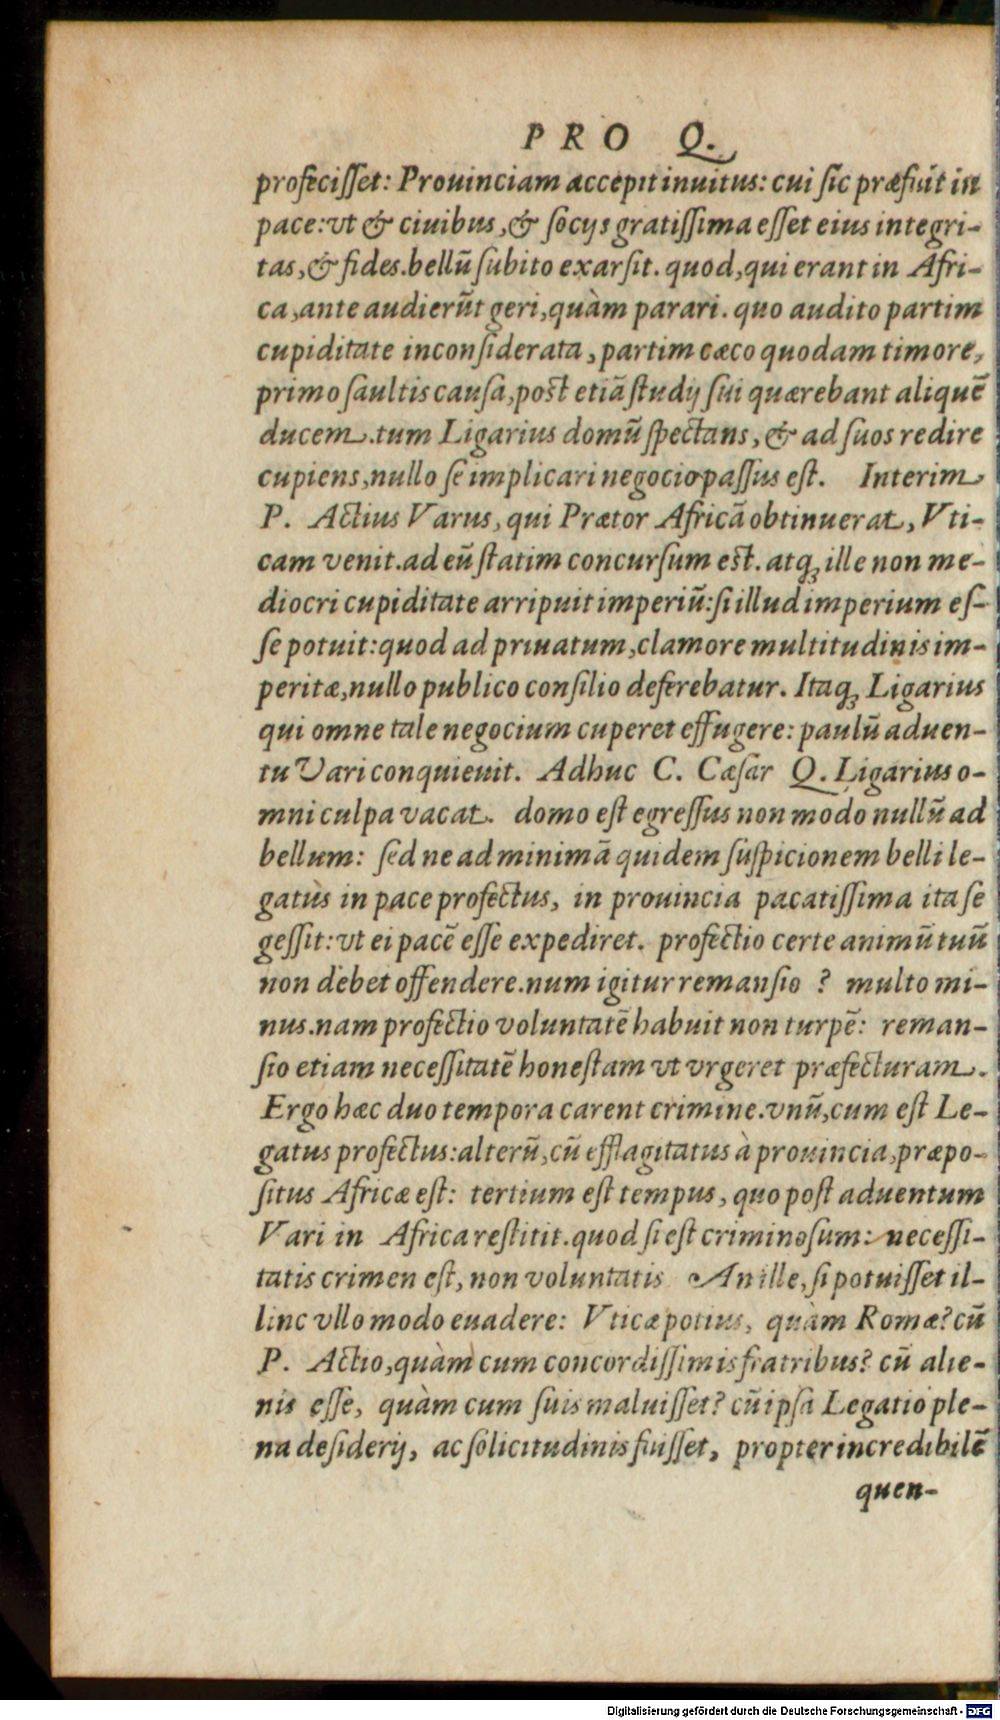 PRO Q.
profecisset: Prouinciam accepit inuitus: cui sic præfuit in
pace: vt & ciuibus, & socijs gratissima esset eius integri-
tas, & fides. bellũ subito exarsit. quod, qui erant in Afri-
ca, ante audierũt geri, quàm parari. quo audito partim
cupiditate inconsiderata, partim cæco quodam timore,
primo saultis causa, post etiã studij sui quærebant aliquẽ
ducem. tum Ligarius domũ spectans, & ad suos redire
cupiens, nullo se implicari negocio passus est. Interim
P. Actius Varus, qui Prætor Africã obtinuerat, Vti-
cam venit. ad eũ statim concursum est. atq; ille non me-
diocri cupiditate arripuit imperiũ: si illud imperium es-
se potuit: quod ad priuatum, clamore multitudinis im-
peritæ, nullo publico consilio deferebatur. Itaq; Ligarius
qui omne tale negocium cuperet effugere: paulũ aduen-
tu Vari conquieuit. Adhuc C. Cæsar Q. Ligarius o-
mni culpa vacat. domo est egressus non modo nullũ ad
bellum: sed ne ad minimã quidem suspicionem belli le-
gatus in pace profectus, in prouincia pacatissima ita se
gessit: vt ei pacẽ esse expediret. profectio certe animũ tuũ
non debet offendere. num igitur remansio ? multo mi-
nus. nam profectio voluntatẽ habuit non turpẽ: reman-
sio etiam necessitatẽ honestam vt vrgeret præfecturam.
Ergo hæc duo tempora carent crimine. vnũ, cum est Le-
gatus profectus: alterũ, cũ efflagitatus à prouincia, præpo-
situs Africæ est: tertium est tempus, quo post aduentum
Vari in Africa restitit. quod si est criminosum: necessi-
tatis crimen est, non voluntatis An ille, si potuisset il-
linc vllo modo euadere: Vticæ potius, quàm Romæ? cũ
P. Actio, quàm cum concordissimis fratribus? cũ alie-
nis esse, quàm cum suis maluisset? cũ ipsa Legatio ple-
na desiderij, ac solicitudinis fuisset, propter incredibilẽ
quen-
Digitalisierung gefördert durch die Deutsche Forschungsgemeinschaft - DFG